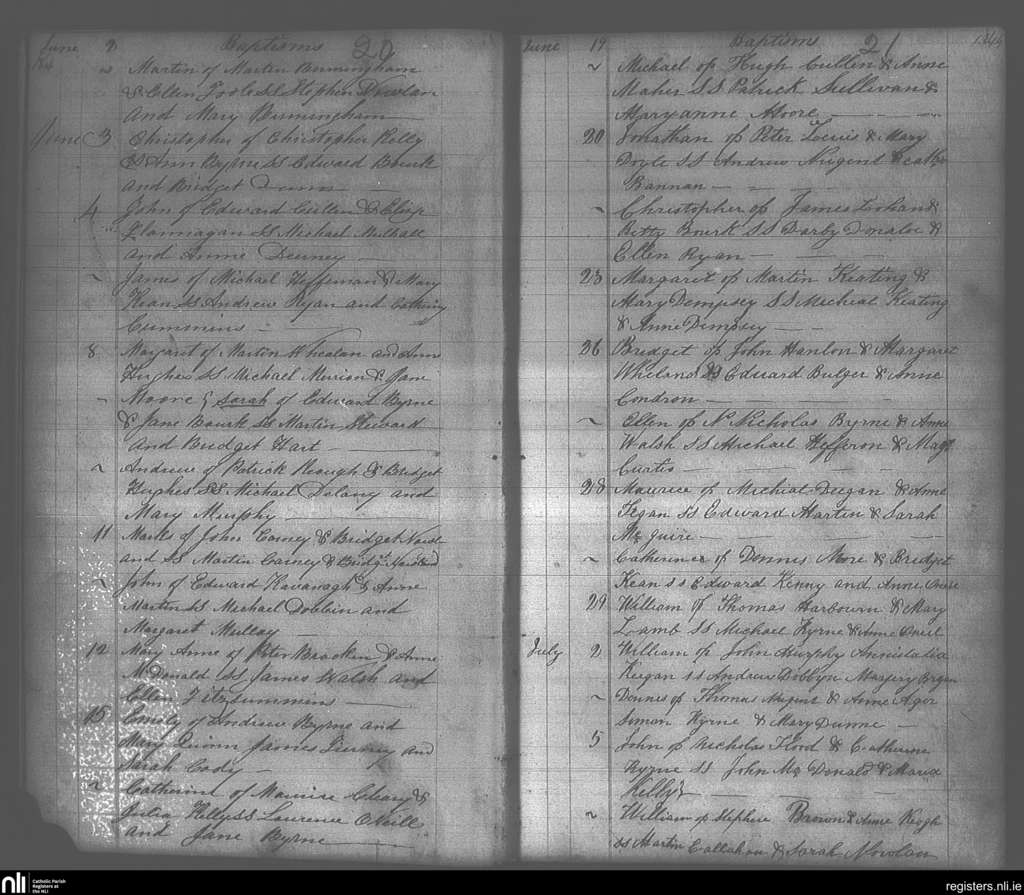 June 2 Baptisms 20
184
" Martin of Martin Birmingham
& Ellen Toole SS Stephen Dowlan
and Mary Birmingham
June 3 Christopher of Christopher Kelly
& Ann Byrne SS Edward Bourk
and Bridget Dunn
4 John of Edward Cullen & Eliz
Flannagan SS Michael Mulhall
and Anne Deurney
~ James of Michael Heffernan & Mary
Kean SS Andrew Ryan and Cathrine
Cummins
8 Margaret of Martin Whealan and Ann
Hughes SS Michael Merrion & Jane
~ Moore & Sarah of Edward Byrne
& Jane Bourk SS Martin Steward
and Bridget Hart
~ Andrew of Patrick Keough & Bridget
Hughes SS Michael Delany and
Mary Murphy
11 Marks of John Carney & Bridget
and SS Martin Carney & Bridgt
~ John of Edward Kavanagh & Anne
Martin SS Michael Doolin and
Margaret Mullay
12 Mary Anne of Peter Bracken & Anne
McDonald SS James Walsh and
Ellen Fitzsimmins
15 Emily of Andrew Byrne and
Mary Quinn James Tierney and
Sarah Cody
~ Catherine of Maurise Cleary &
Julia Kelly SS Laurence ONeill
and Jane Byrne
June 19 Baptisms 21 1844
~ Michael of Hugh Cullen & Anne
Maher SS Patrick Sullivan &
Maryanne Moore
20 Jonathan of Peter Lewis & Mary
Doyle SS Andrew Nugent &
Bannan
~ Christopher of James &
Betty Bourk SS Darby Donaloe &
Ellen Ryan
23 Margaret of Martin Keating &
Mary Dempsey SS Michial Keating
& Anne Dempsey
26 Bridget of John Hanlon & Margaret
Wheland SS Edward Bulger & Anne
Condron
~ Ellen of Nicholas Byrne & Anne
Walsh SS Michael Heffron & Magt
Curtis
28 Maurice of Michial Deegan & Anne
Fegan SS Edward Hartin & Sarah
Mc guire
~ Catherine of Dennis More & Bridget
Kean SS Edward Kenny and Anne
29 William of Thomas Harbourn & Mary
Lamb SS Michael Kyrne & Anne Oneil
July 2 William of John Murphy
Keegan SS Andrew Dobbyn Margery
~ Dennes of Thomas Nugent & Anne Ager
Simon Kyrne & Mary Dunne
5 John of Nicholas Flood & Catherine
Byrne SS John Mc Donald & Maria
Kelly
~ William of Stephen Brown & Anne Keogh
SS Martin Callahan & Sarah Nowlan
nli Catholic Parish
Registers at
the NLI
registers.nli.ie